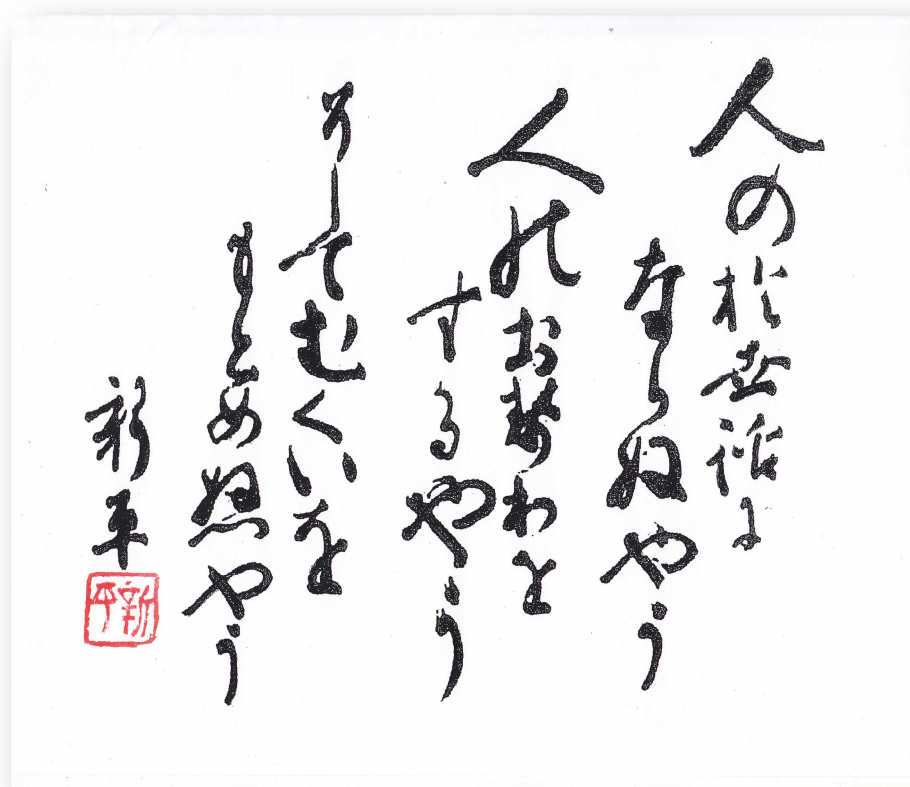 人のお世話に
ならぬやう
人のおせわを
するやう
そしてむくいを
もとめぬやう
新平
新平